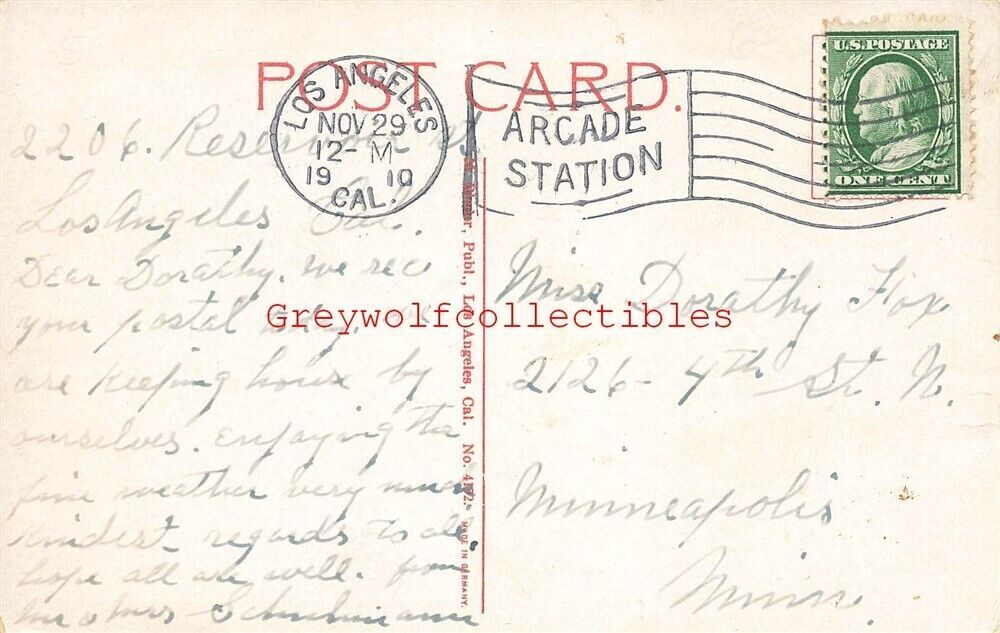 POST CARD.
LOS ANGELES
NOV 29
12-M
1910
CAL.
ARCADE
STATION
U.S. POSTAGE
ONE CENT
2206. Reservoir St
Los Angeles Cal.
Dear Dorathy. we rec
your postal today.
are keeping house by
ourselves. enjoying the
fine weather very much
kindest regards to all.
hope all are well. from
Mr & Mrs Schuhmann
Publ., Los Angeles, Cal. No. 4172. MADE IN GERMANY.
Miss Dorathy Fox
2126- 4th St. N.
Minneapolis
Minn.
Greywolfcollectibles